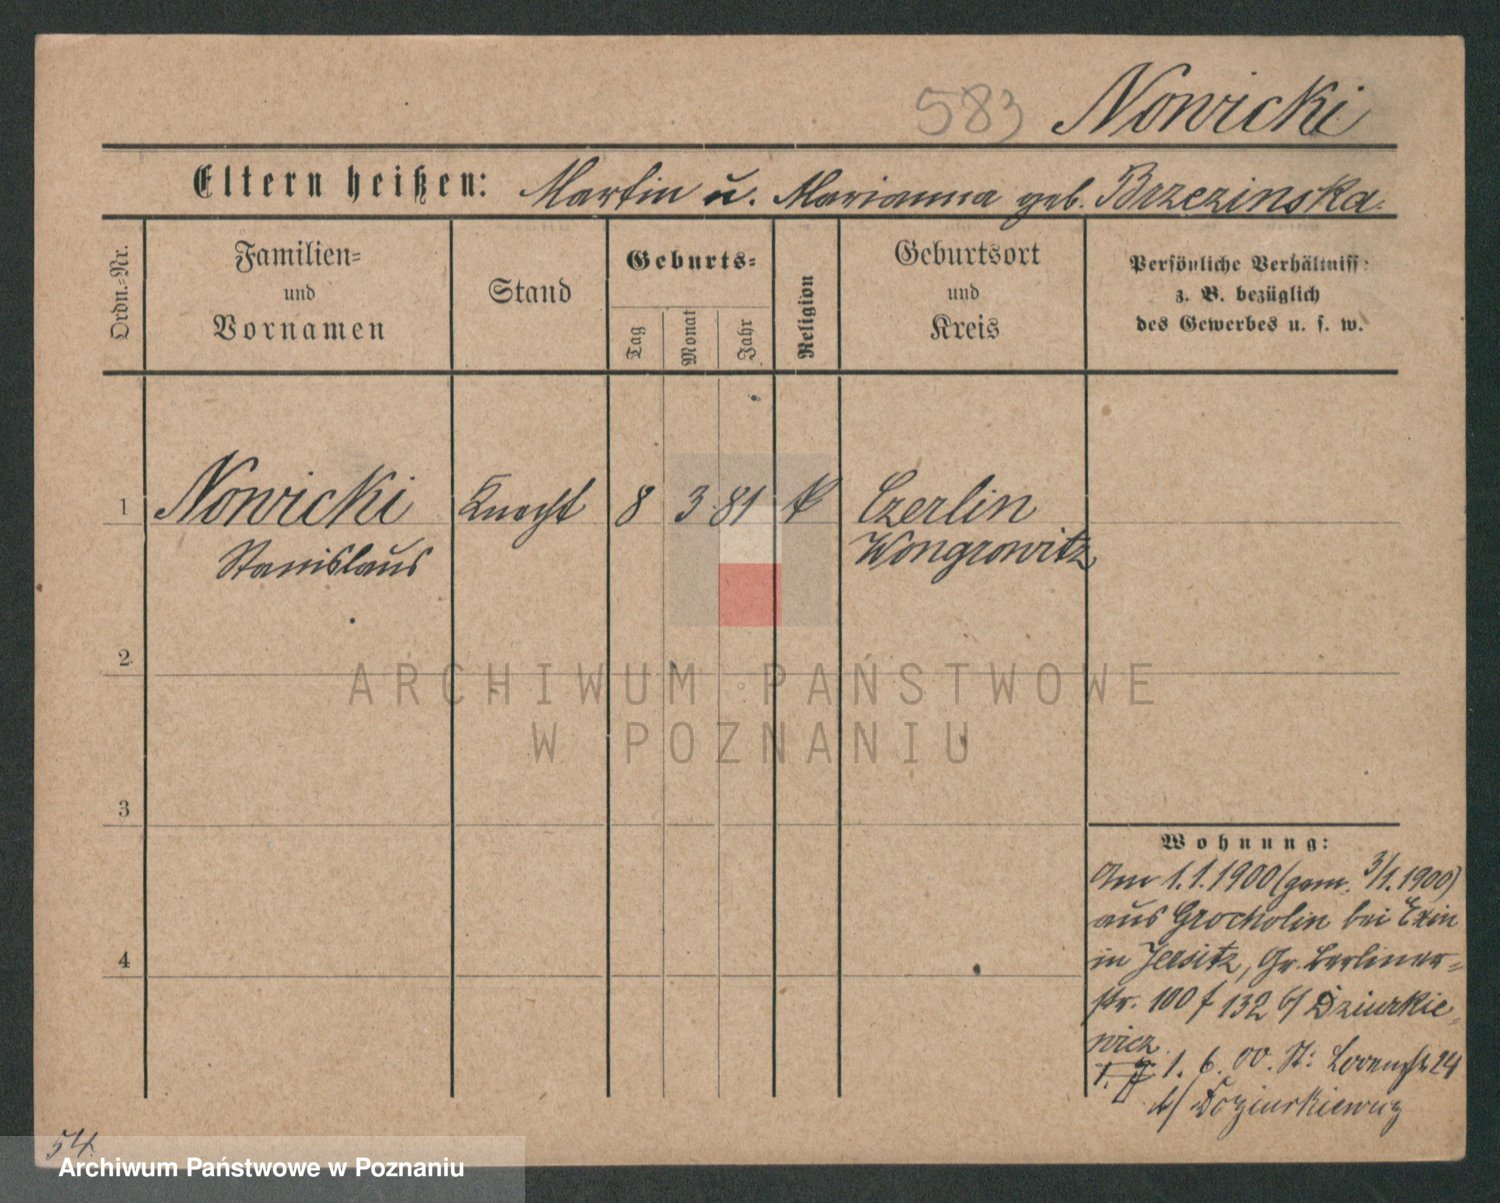 583 Nowicki
Eltern heißen: Martin u. Marianna geb. Brzezinska.
Ordn.-Nr.
Familien-
und
Vornamen
Stand
Geburts-
Tag
Monat
Jahr
Religion
Geburtsort
und
Kreis
Persönliche Verhältniss-
z. B. bezüglich
des Gewerbes u. s. w.
1 Nowicki Knecht 8 3 81 k Czerlin
Stanislaus Wongrowitz
2
3
4
Wohnung:
Am 1.1.1900 (gem. 3/1.1900)
aus Grocholin bei Exin
in Jersitz, Gr. Berliner-
str. 100 f 132 b/ Dziurkie-
wicz
1. 6. 00. St:
b/
54.
ARCHIWUM PAŃSTWOWE
W POZNANIU
Archiwum Państwowe w Poznaniu